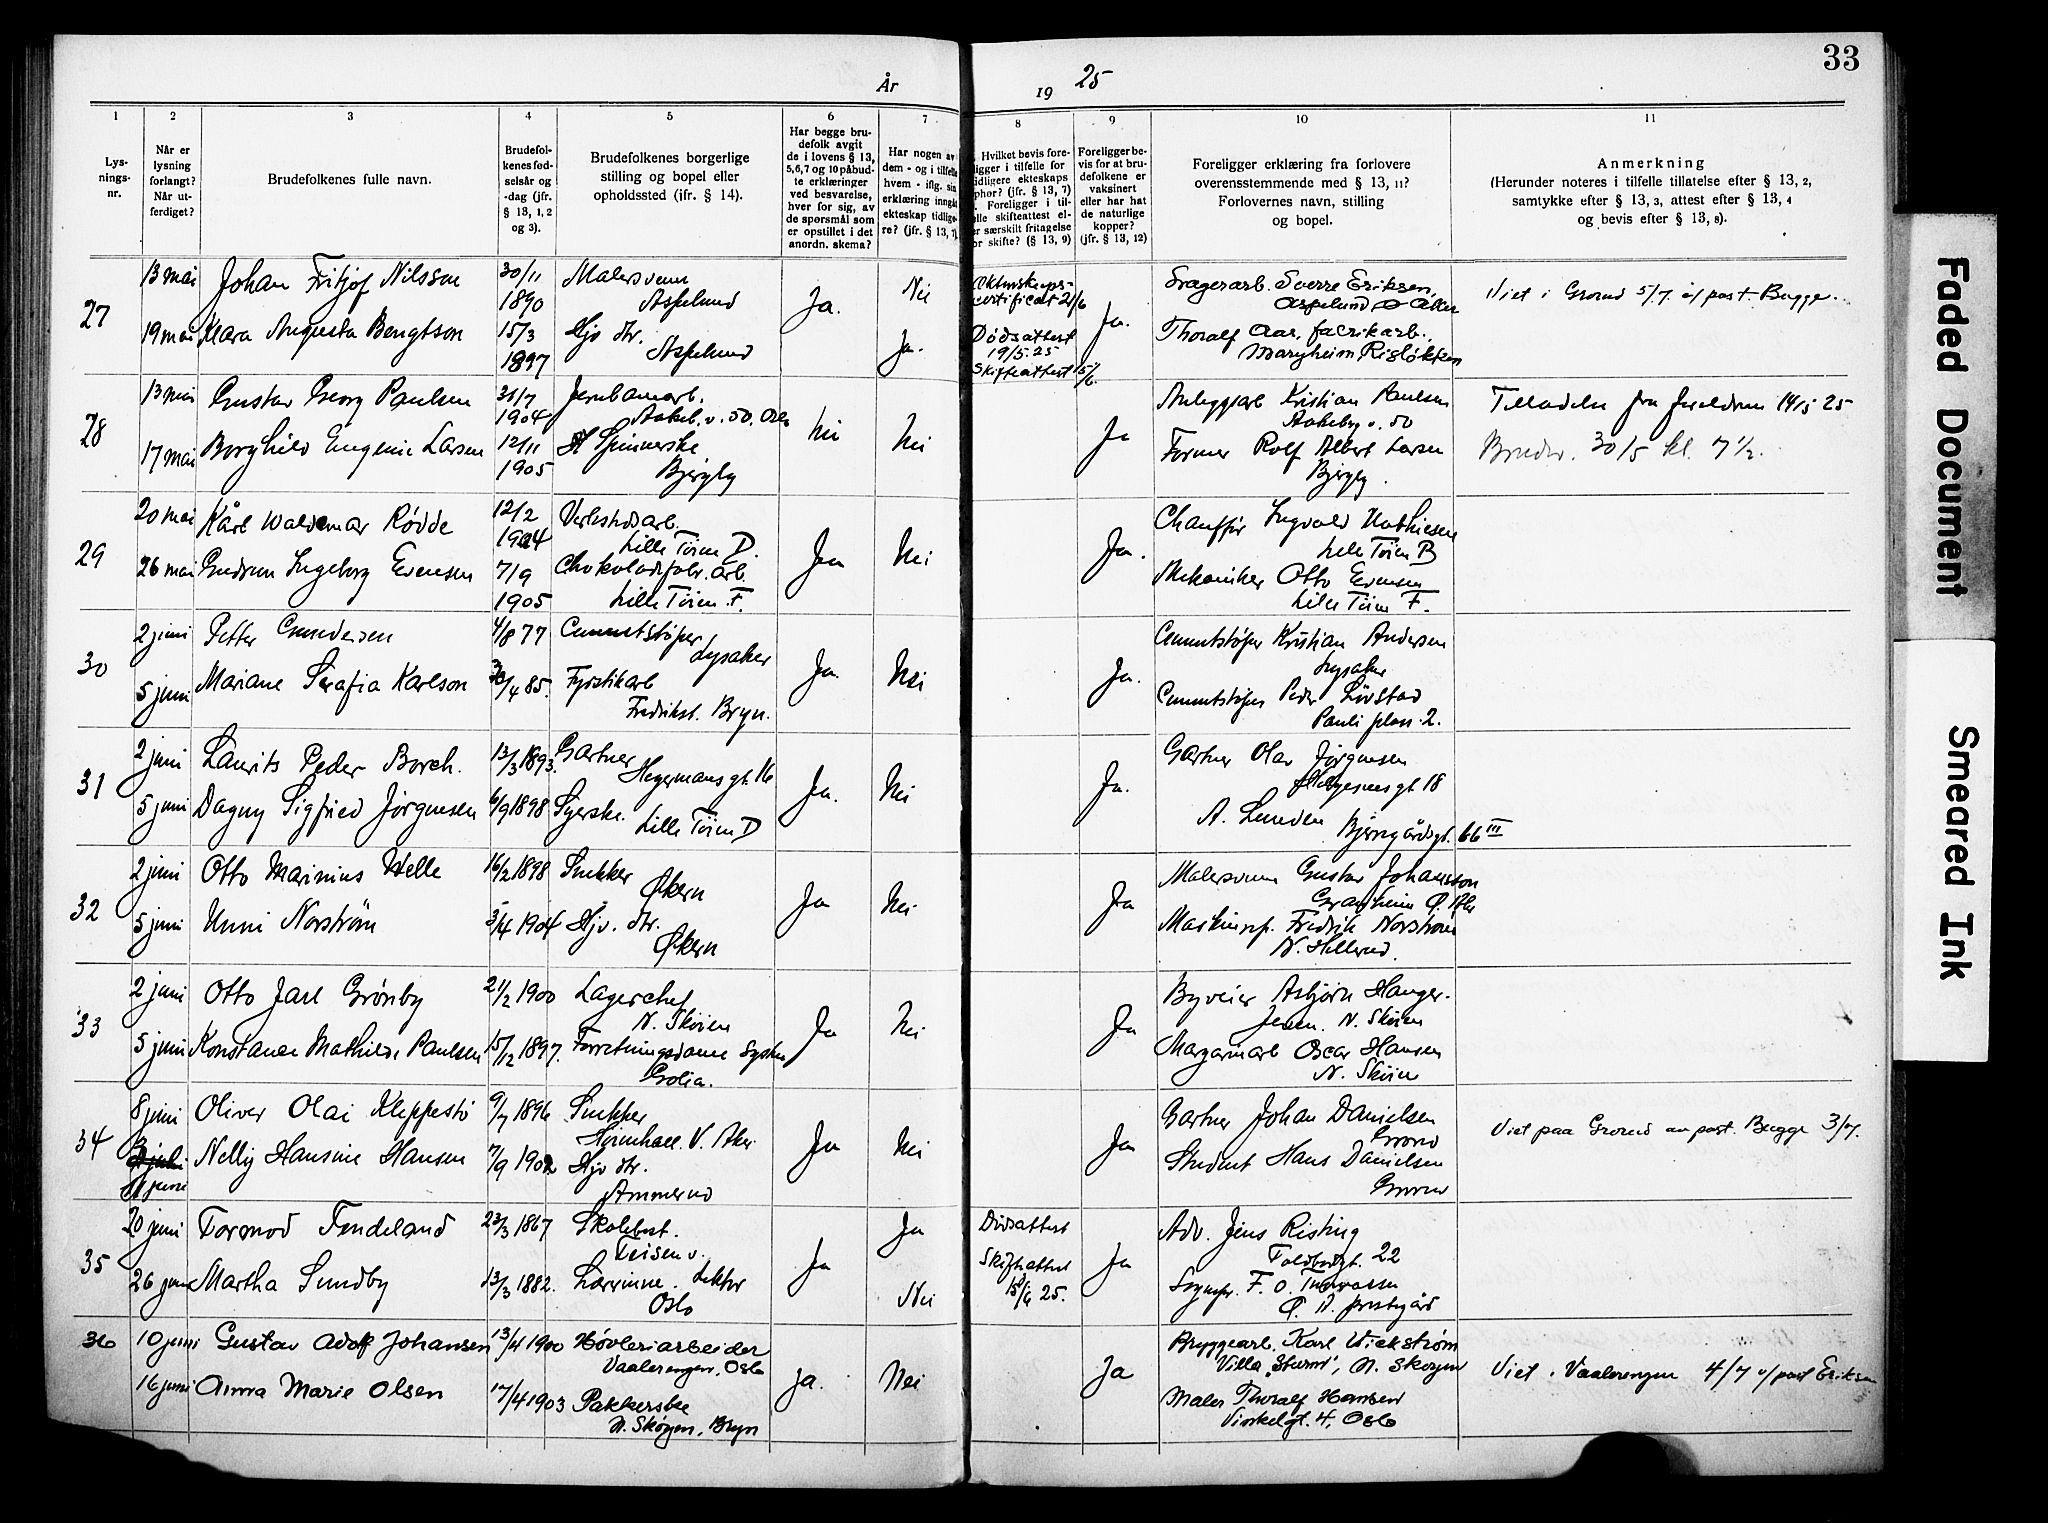 33
År 1925
1
2
3
4
5
6
7
8
9
10
11
Lys-
nings-
nr.
Når er
lysning
forlangt?
Når ut-
ferdiget?
Brudefolkenes fulle navn.
Brudefol-
kenes fød-
selsår og
-dag (jfr.
§ 13, 1, 2
og 3).
Brudefolkenes borgerlige
stilling og bopel eller
opholdssted (jfr. § 14).
Har begge bru-
defolk avgit
de i lovens § 13,
5,6,7 og 10 påbud-
te erklæringer
ved besvarelse,
hver for sig, av
de spørsmål som
er opstillet i det
anordn. skema?
Har nogen av
dem - og i tilfelle
hvem - iflg. sin
erklæring inngåt
ekteskap tidlige-
re? (jfr. § 13, 7)
Hvilket bevis fore-
ligger i tilfelle for
tidligere ekteskaps
ophør? (jfr. § 13, 7)
Foreligger i til-
felle skifteattest el-
er særskilt fritagelse
for skifte? (§ 13, 9)
Foreligger be-
vis for at bru-
defolkene er
vaksinert
eller har hat
de naturlige
kopper?
(jfr. § 13, 12)
Foreligger erklæring fra forlovere
overensstemmende med § 13, 11?
Forlovernes navn, stilling
og bopel.
Anmerkning
(Herunder noteres i tilfelle tillatelse efter § 13, 2,
samtykke efter § 13, 3, attest efter § 13, 4
og bevis efter § 13, 8).
27
13 mai Johan Fritjof Nilsson 30/11 1890 Malersvenn Aspelund
Ja. Nei
19 mai Klara Augusta Bengtson 15/3 1897 Hjv. dtr. Aspelund
Ja.
certificat 2/6
Dødsattest
19/5. 25
Skifteattest 5/6.
Ja.
Sverre Eriksen,
Aspelund Ø Aker
Thoralf Aas, fabrikarb.
Viet i Grorud 5/7. af past. Bugge.
28
13 mai Gustav Georg Paulsen 31/7 1904 Jernbanearb. Aakeb. v. 50. Oslo
Nei Nei
17 mai Borghild Eugenie Larsen 12/11 1905 Spinnerske Bjergby
Ja
Anleggsarb Kristian Paulsen
Aakeby v. 50
Former Rolf Albert Larsen
Bjergby.
Tilladelse fra foreldrene 14/5 25
Bruder. 30/5 kl. 7 1/2.
29
20 mai Kåre Waldemar Rødde 12/2 1904 Verkstedsarb. Lille Tøien D.
Ja Nei
26 mai Gudrun Ingeborg Evensen 7/9 1905 Chokoladefabr. arb. Lille Tøien F.
Ja.
Chauffør Ingvald Mathiesen
Lille Tøien B
Mekaniker Otto Evensen
Lille Tøien F.
30
2 juni Petter Gundersen 4/8 77 Cementstøper Lysaker
Ja. Nei
5 juni Mariane Serafia Karlson 30/4 85. Fyrstikarb Fredrikst. Bryn.
Ja.
Cementstøper Kristian Andersen
Lysaker
Cementstøper Peder Løvstad
Pauli plass 2.
31
2 juni Laurits Peder Borch. 13/3 1893. Gartner Hegermans gt. 16
Ja. Nei
5 juni Dagny Sigfried Jørgensen 6/9 1898 Syerske. Lille Tøien D
Ja.
Gartner Olav Jørgensen
18
A. Lunden Bjerregårdsgt. 66 III
32
2 juni Otto Marinius Helle 16/2 1898 Snekker Økern
Ja Nei
5 juni Unni Norstrøm 3/4 1904 Hjv. dtr. Økern
Ja
Malersvenn Gustav Johansson
Granheim Ø. Aker
Fredrik Norstrøm
N. Hellerud.
33
2 juni Otto Jarl Grønby 21/2 1900 Lagerchef N. Skøien
Ja Nei
5 juni Konstanse Mathilde Paulsen 15/12 1897. Forretningsdame Gsolia.
Ja
Asbjørn Hauger-
Jensen. N. Skøien
Margarinarb Oscar Hansen
N. Skøien
34
8 juni Oliver Olai Kleppestø 9/7 1896 Snekker V. Aker
Ja Nei
11 juni Nelly Hansine Hansen 7/9 1902 Hjv dtr. Ammerud
Ja
Gartner Johan Danielsen
Grorud
Student Hans Danielsen
Grorud
Viet paa Grorud av past. Bugge 3/7.
35
20 juni Tormod Fendeland 23/3 1867 Skolebest. Teisen v.
Ja Ja
26 juni Martha Sundby 13/3 1882. Lærerinne. Oslo
Nei
Dødsattest
Skifteattest
15/6 25.
Ja
Adv. Jens Risting
Toldbodgt. 22
Sognepr. F. O.
Ø. A. prestegård
36
10 juni Gustav Adolf Johansen 13/4 1900 Høvleriarbeider Vaalerengen, Oslo
Ja. Nei
16 juni Anna Marie Olsen 17/4 1903 Pakkerske N. Skøyen, Bryn
Ja
Bryggearb. Karl Wickstrøm
Villa "Sturm", N. Skøyen
Maler Thoralf Hansen
Vinkelgt. 4, Oslo
Viet i Vaalerengen 4/7 v/past Eriksen
Faded Document
Smeared Ink